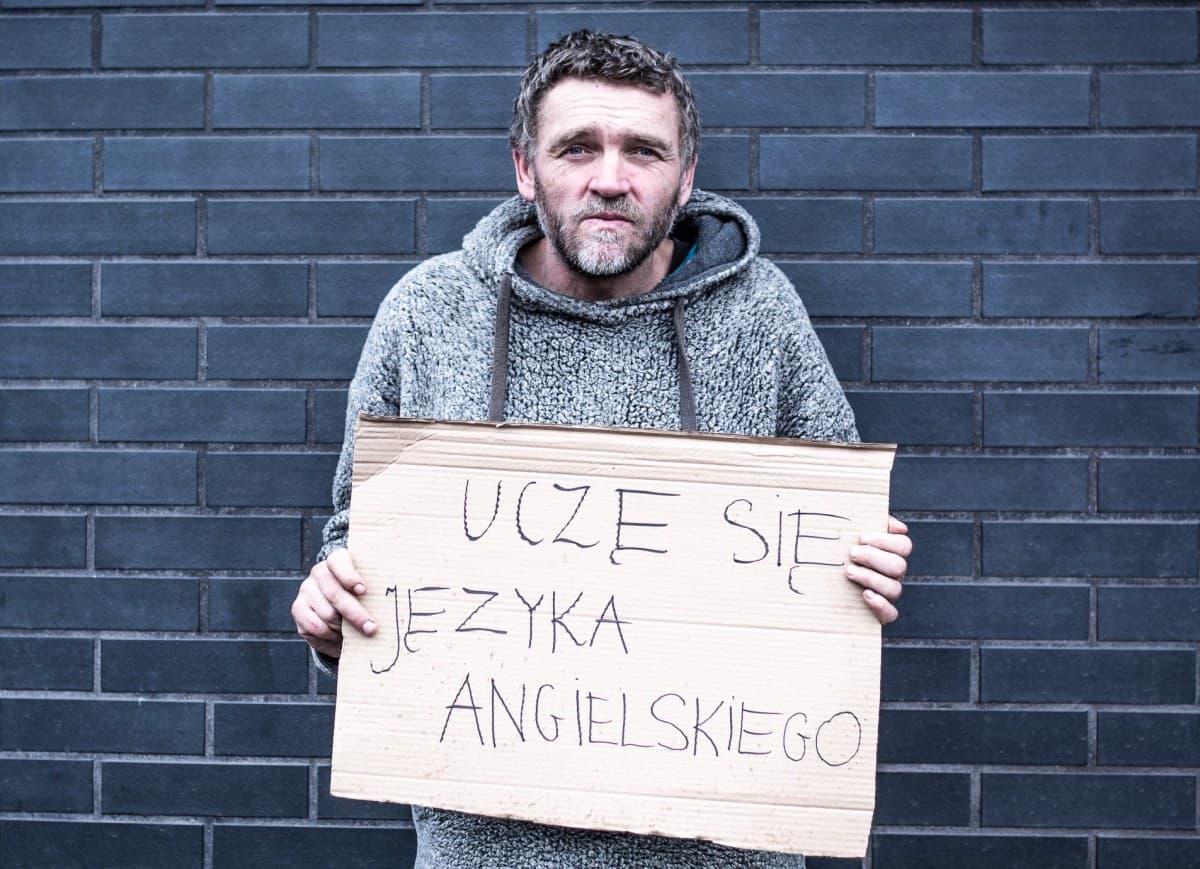 UCZĘ SIĘ
JĘZYKA
ANGiELSKiEGO